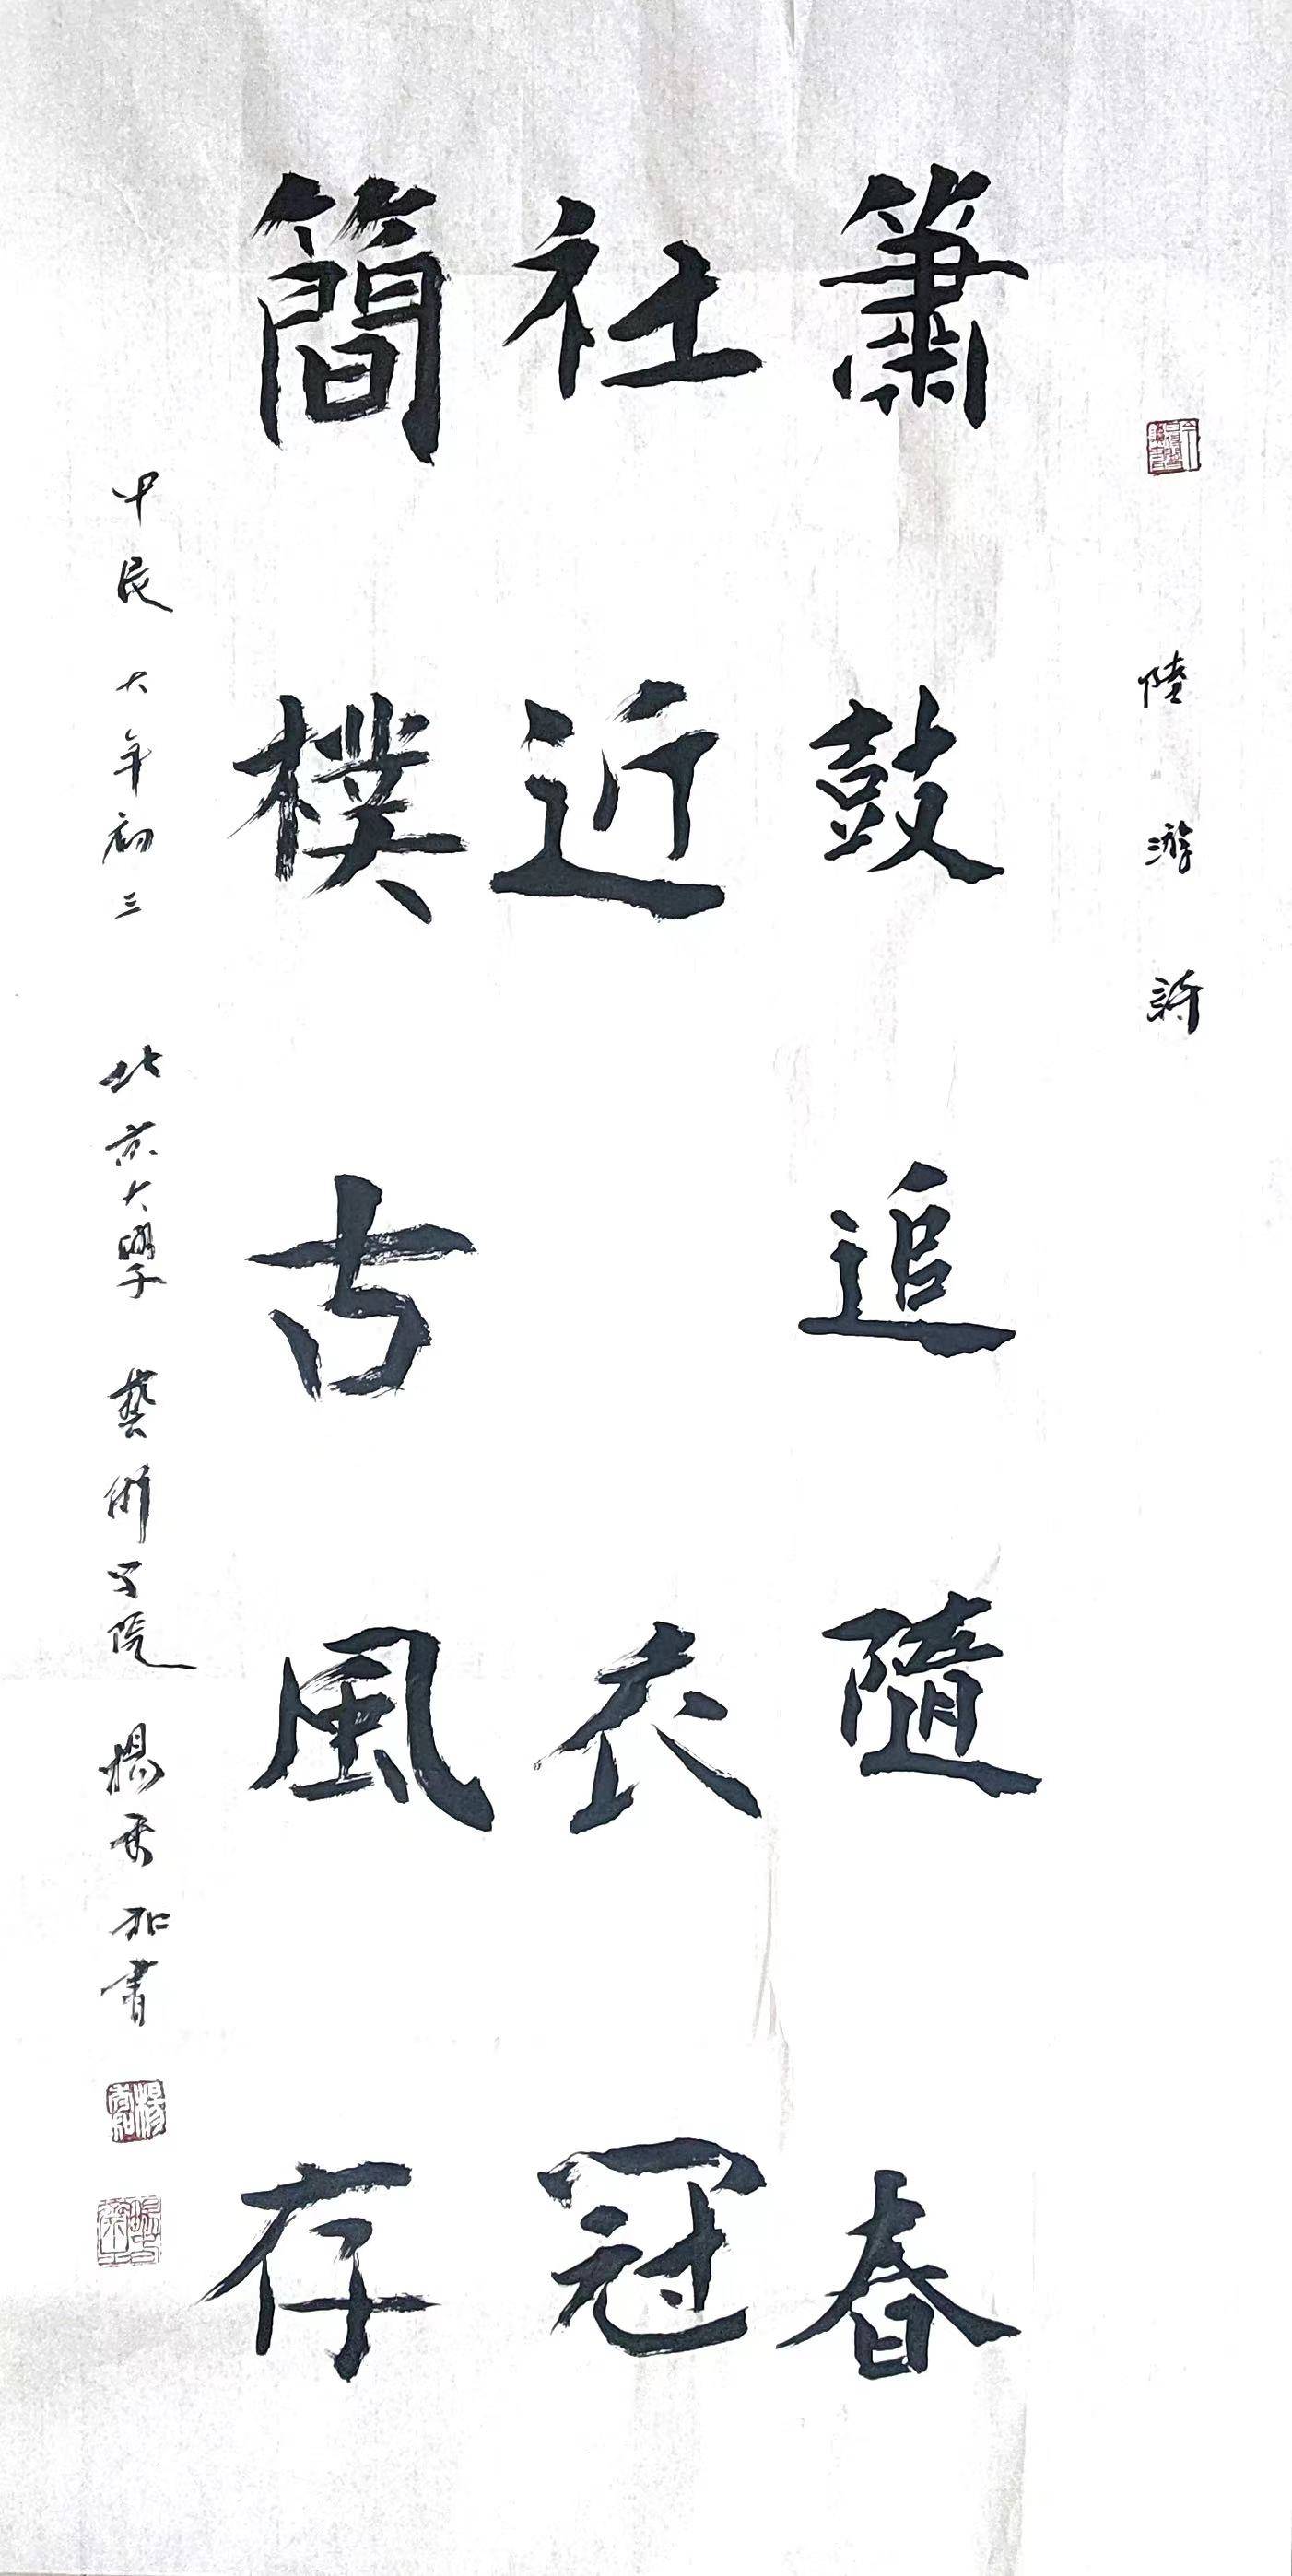 陸游詩
簫鼓追隨春
社近衣冠
簡樸古風存
甲辰大年初三 北京大學藝術學院 楊 和書